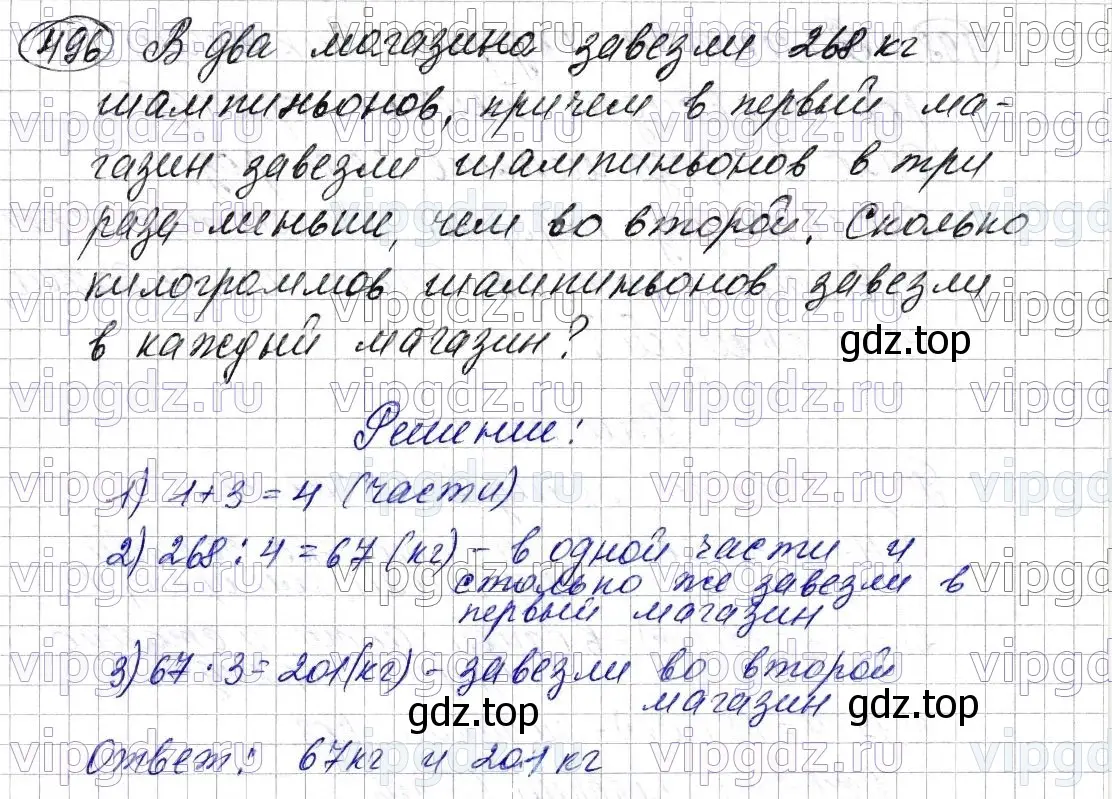 496 В два магазина завезли 268 кг
шампиньонов, причем в первый ма-
газин завезли шампиньонов в три
раза меньше, чем во второй. Сколько
килограммов шампиньонов завезли
в каждый магазин?
gdz.top
Решение:
1) 1+3=4 (части)
2) 268:4=67 (кг) - в одной части и
столько же завезли в
первый магазин
3) 67·3=201(кг) - завезли во второй
магазин
gdz.top
Ответ: 67кг и 201 кг